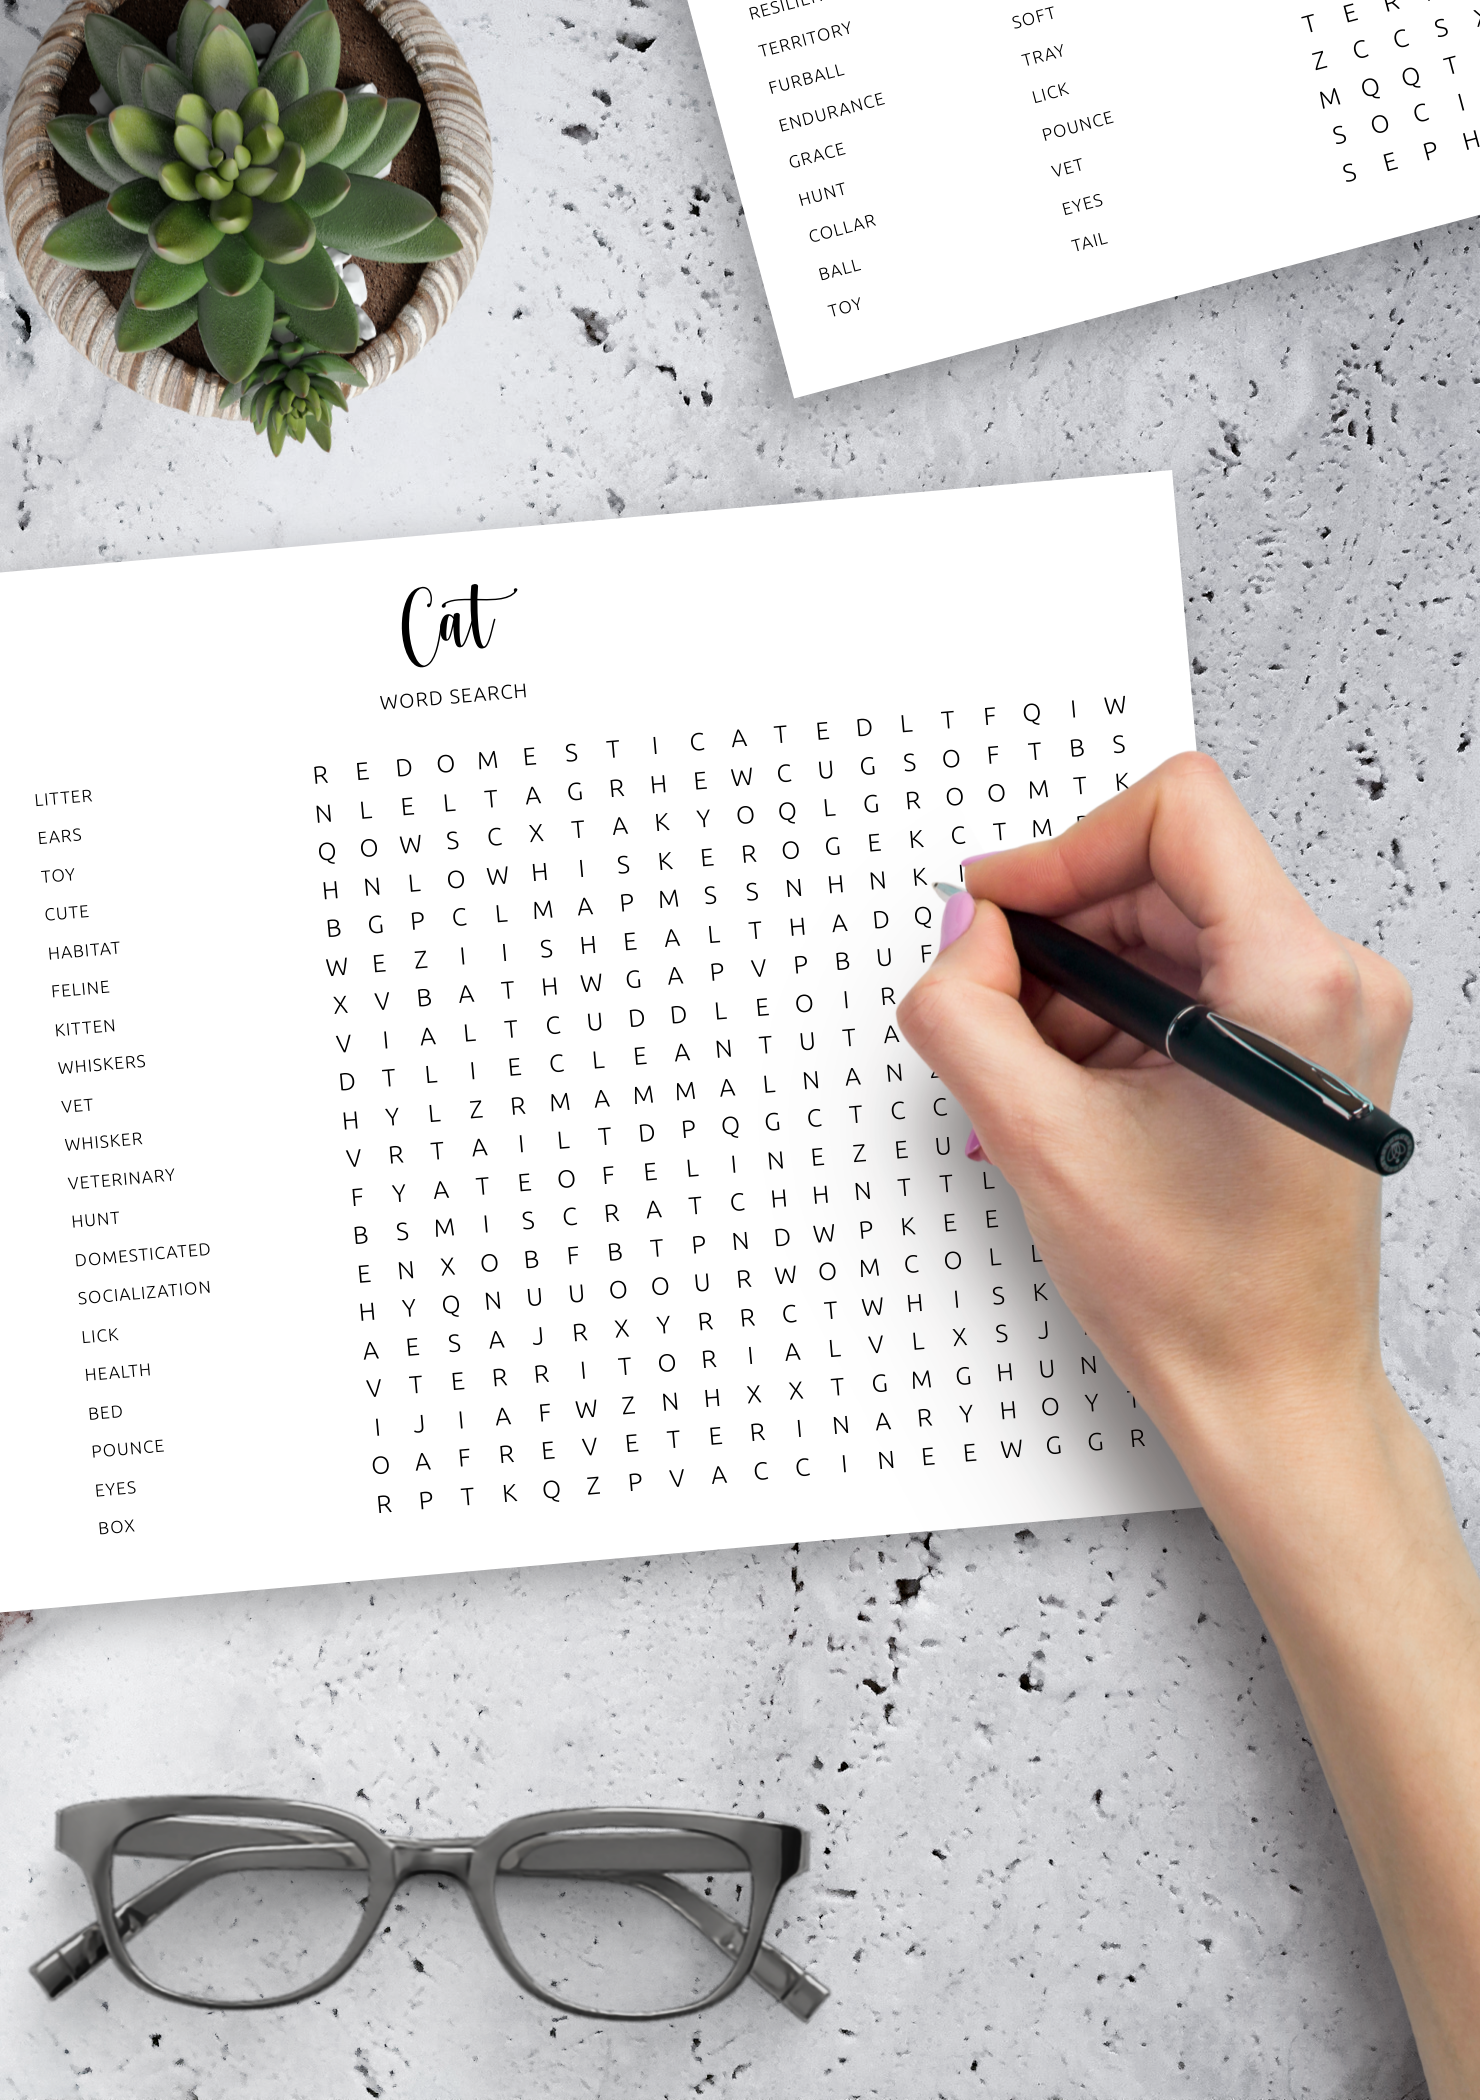 TERRITORY
FURBALL
ENDURANCE
GRACE
HUNT
COLLAR
BALL
TOY
SOFT
TRAY
LICK
POUNCE
VET
EYES
TAIL
T E R
Z C C S
M Q Q T
S O C I
S E P H
Cat
WORD SEARCH
LITTER
EARS
TOY
CUTE
HABITAT
FELINE
KITTEN
WHISKERS
VET
WHISKER
VETERINARY
HUNT
DOMESTICATED
SOCIALIZATION
LICK
HEALTH
BED
POUNCE
EYES
BOX
R E D O M E S T I C A T E D L T F Q I W
N L E L T A G R H E W C U G S O F T B S
Q O W S C X T A K Y O Q L G R O O M T K
H N L O W H I S K E R O G E K C T M
B G P C L M A P M S S N H N K
W E Z I I S H E A L T H A D Q
X V B A T H W G A P V P B U F
V I A L T C U D D L E O I R
D T L I E C L E A N T U T A
H Y L Z R M A M M A L N A N
V R T A I L T D P Q G C T C C
F Y A T E O F E L I N E Z E U
B S M I S C R A T C H H N T T L
E N X O B F B T P N D W P K E E
H Y Q N U U O O U R W O M C O L L
A E S A J R X Y R R C T W H I S K
V T E R R I T O R I A L V L X S J
I J I A F W Z N H X X T G M G H U N
O A F R E V E T E R I N A R Y H O Y
R P T K Q Z P V A C C I N E E W G G R